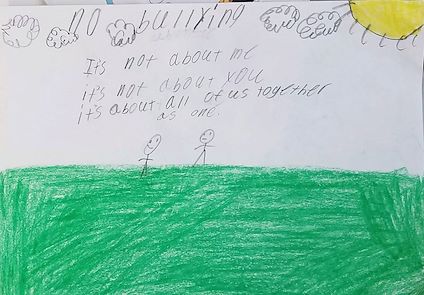 no bullying
It's not about me
it's not about you
it's about all of us together
as one.